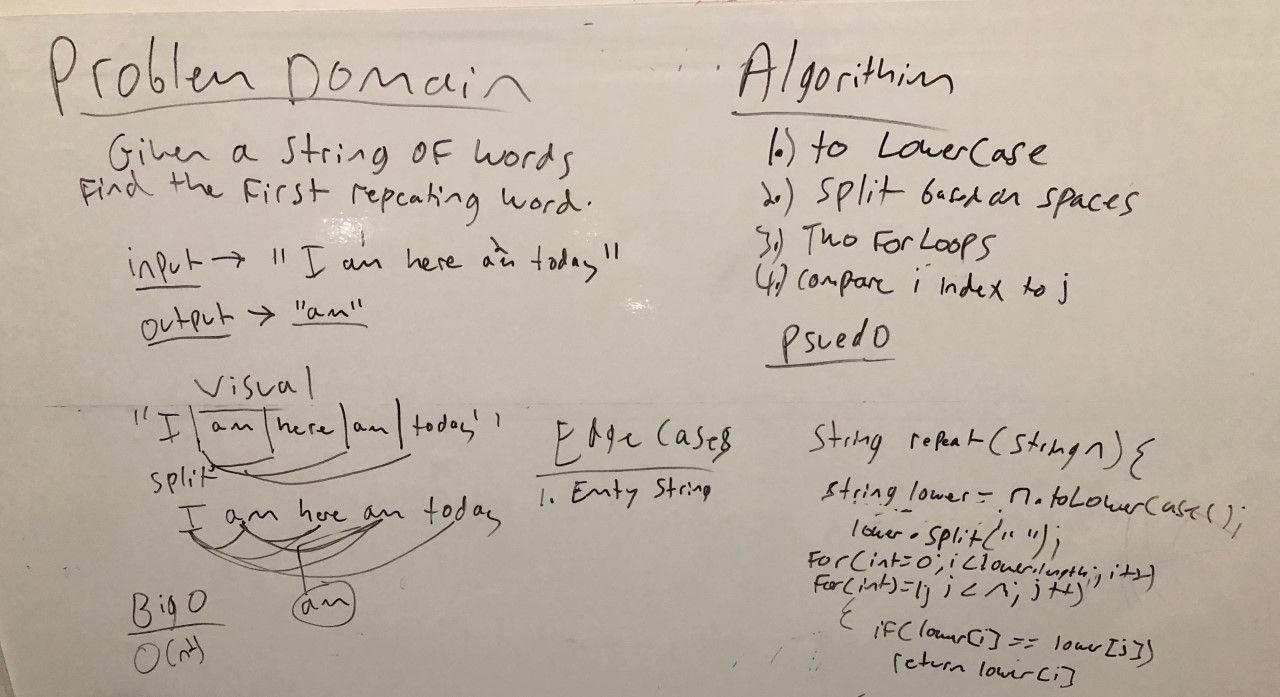 Problem Domain
Given a string of words
Find the first repeating word.
1 2
input → "I am here am today"
output → "am"
Visual
"I | am | here | am | today"
split
I am here am today
am
Big O
O(n²)
Edge Cases
1. Emty String
Algorithim
1.) to LowerCase
2.) Split based on spaces
3.) Two For Loops
4.) Compare i index to j
Psuedo
String repeat(string n) {
string lower = n.toLowerCase();
lower.split(" ");
For(int=0; i<lower.length; i++)
For(int j=1; j < n; j++)
{
if(lower[i] == lower[j])
return lower[i]